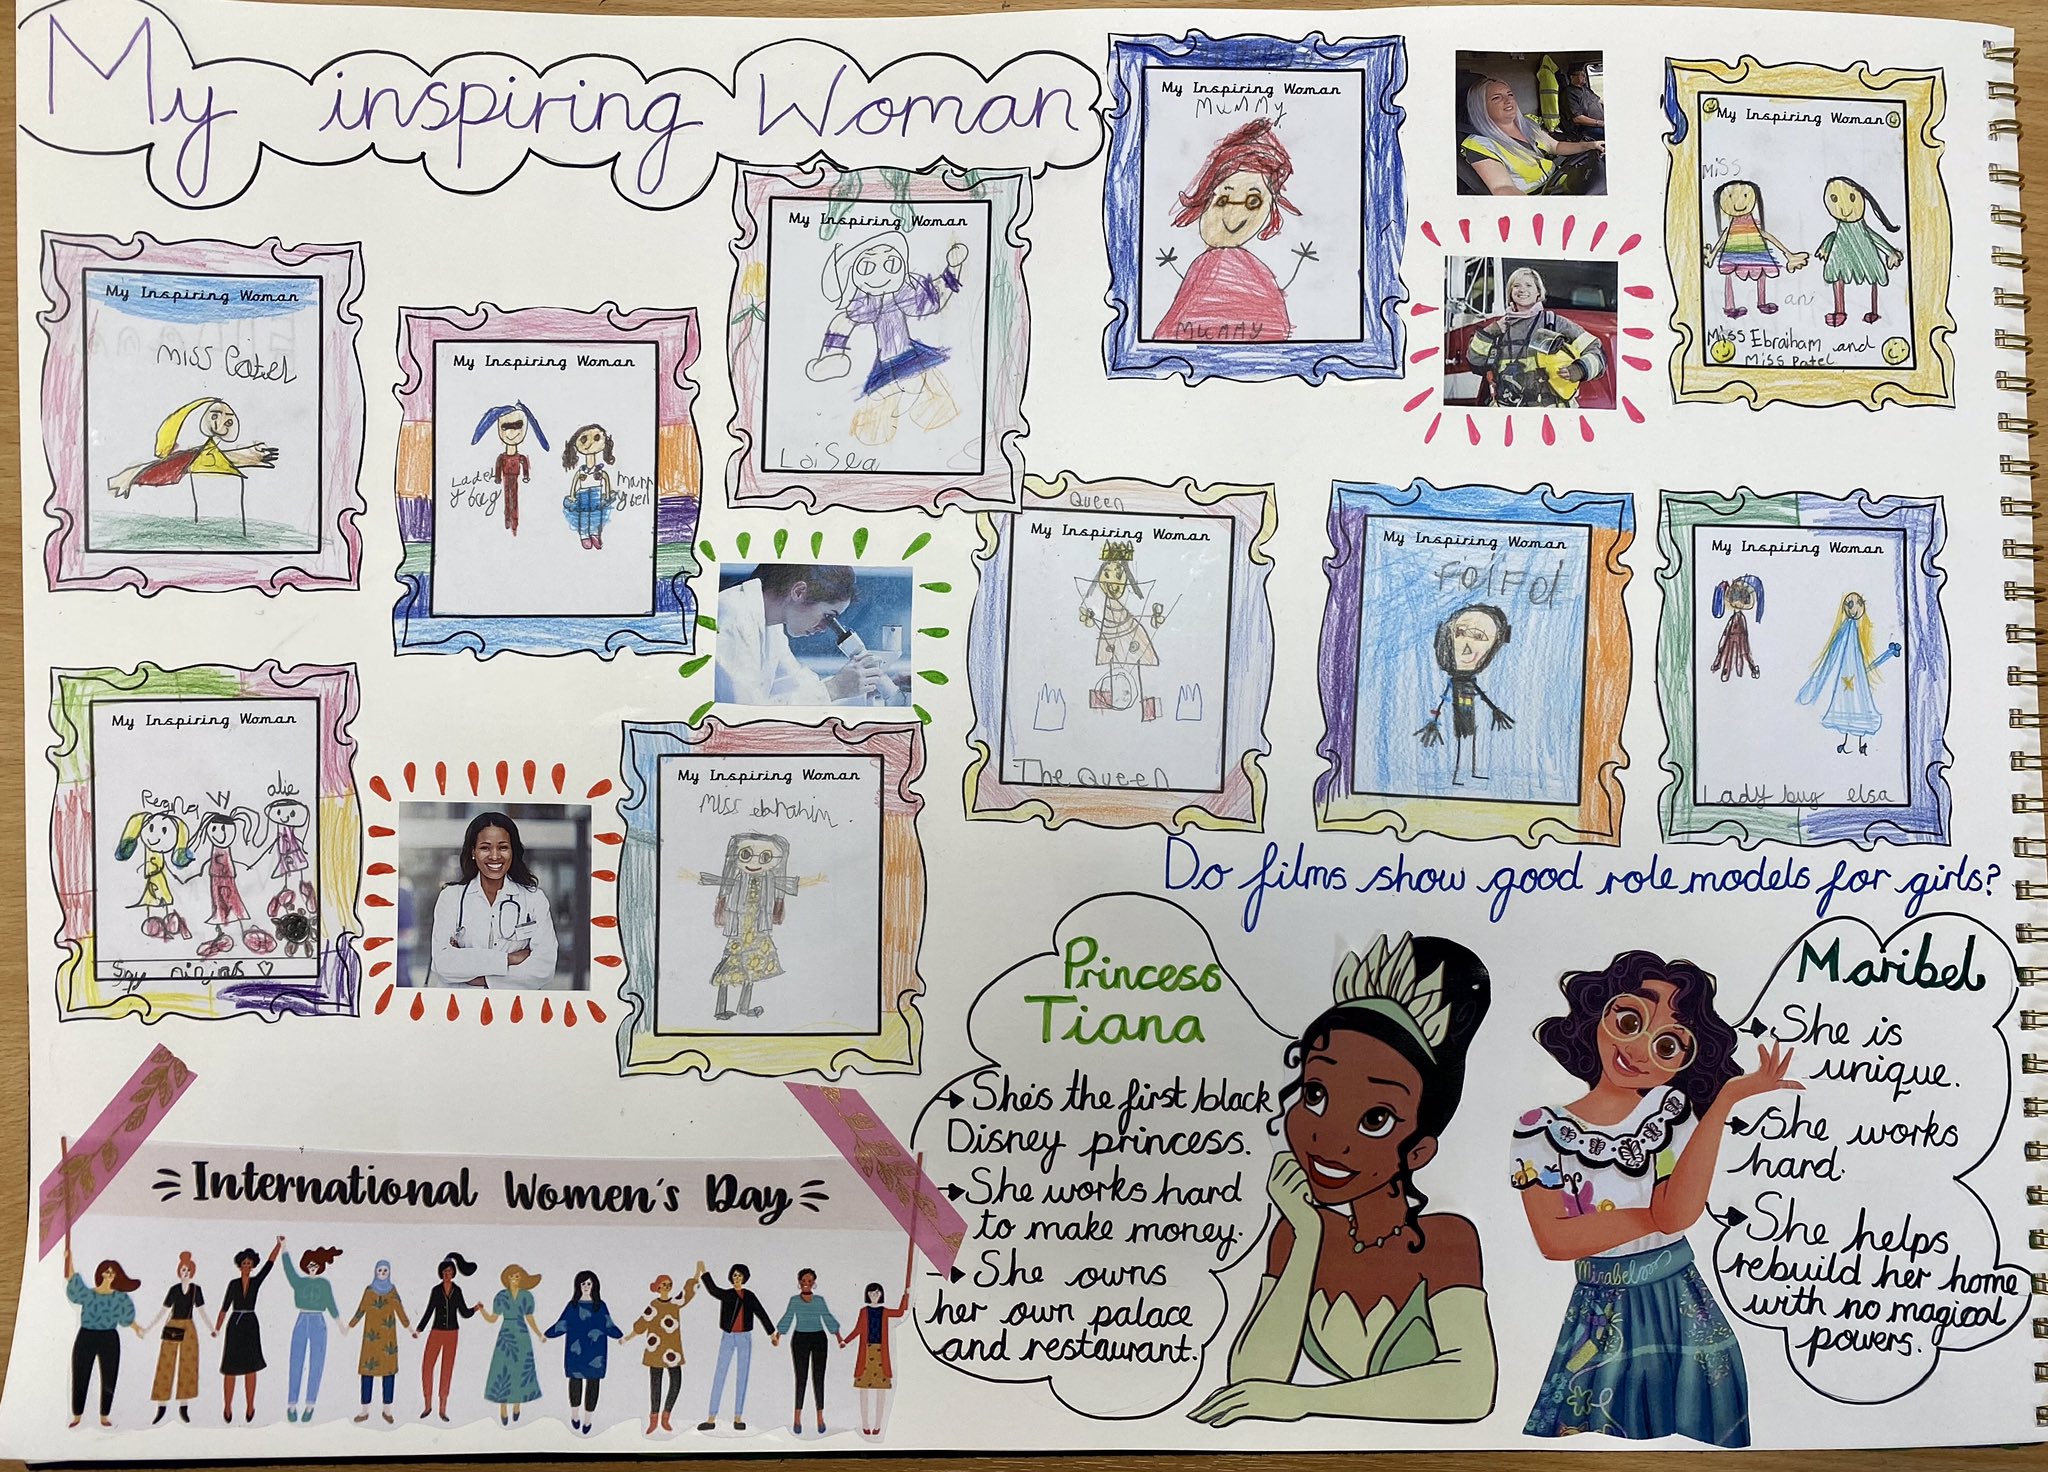 My inspiring Woman
My Inspiring Woman
Miss Patel
My Inspiring Woman
Lade
y bug
My Inspiring Woman
Loisea
My Inspiring Woman
Mummy
Mummy
My Inspiring Woman
Miss
ani
Miss Ebraiham and
Miss Patel
My Inspiring Woman
Regna
W
alie
Spy ninjas
My Inspiring Woman
Miss ebrahim.
Queen
My Inspiring Woman
The Queen
My Inspiring Woman
My Inspiring Woman
Lady bug elsa
Do films show good role models for girls?
Princess
Tiana
She's the first black
Disney princess.
She works hard
to make money.
She owns
her own palace
and restaurant.
Maribel
She is
unique.
She works
hard.
She helps
rebuild her home
with no magical
powers.
Mirabel
International Women's Day